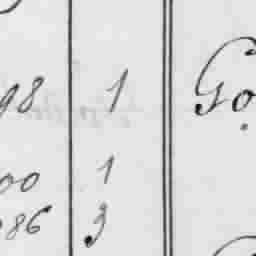 98 1 Go
00 1
86 3